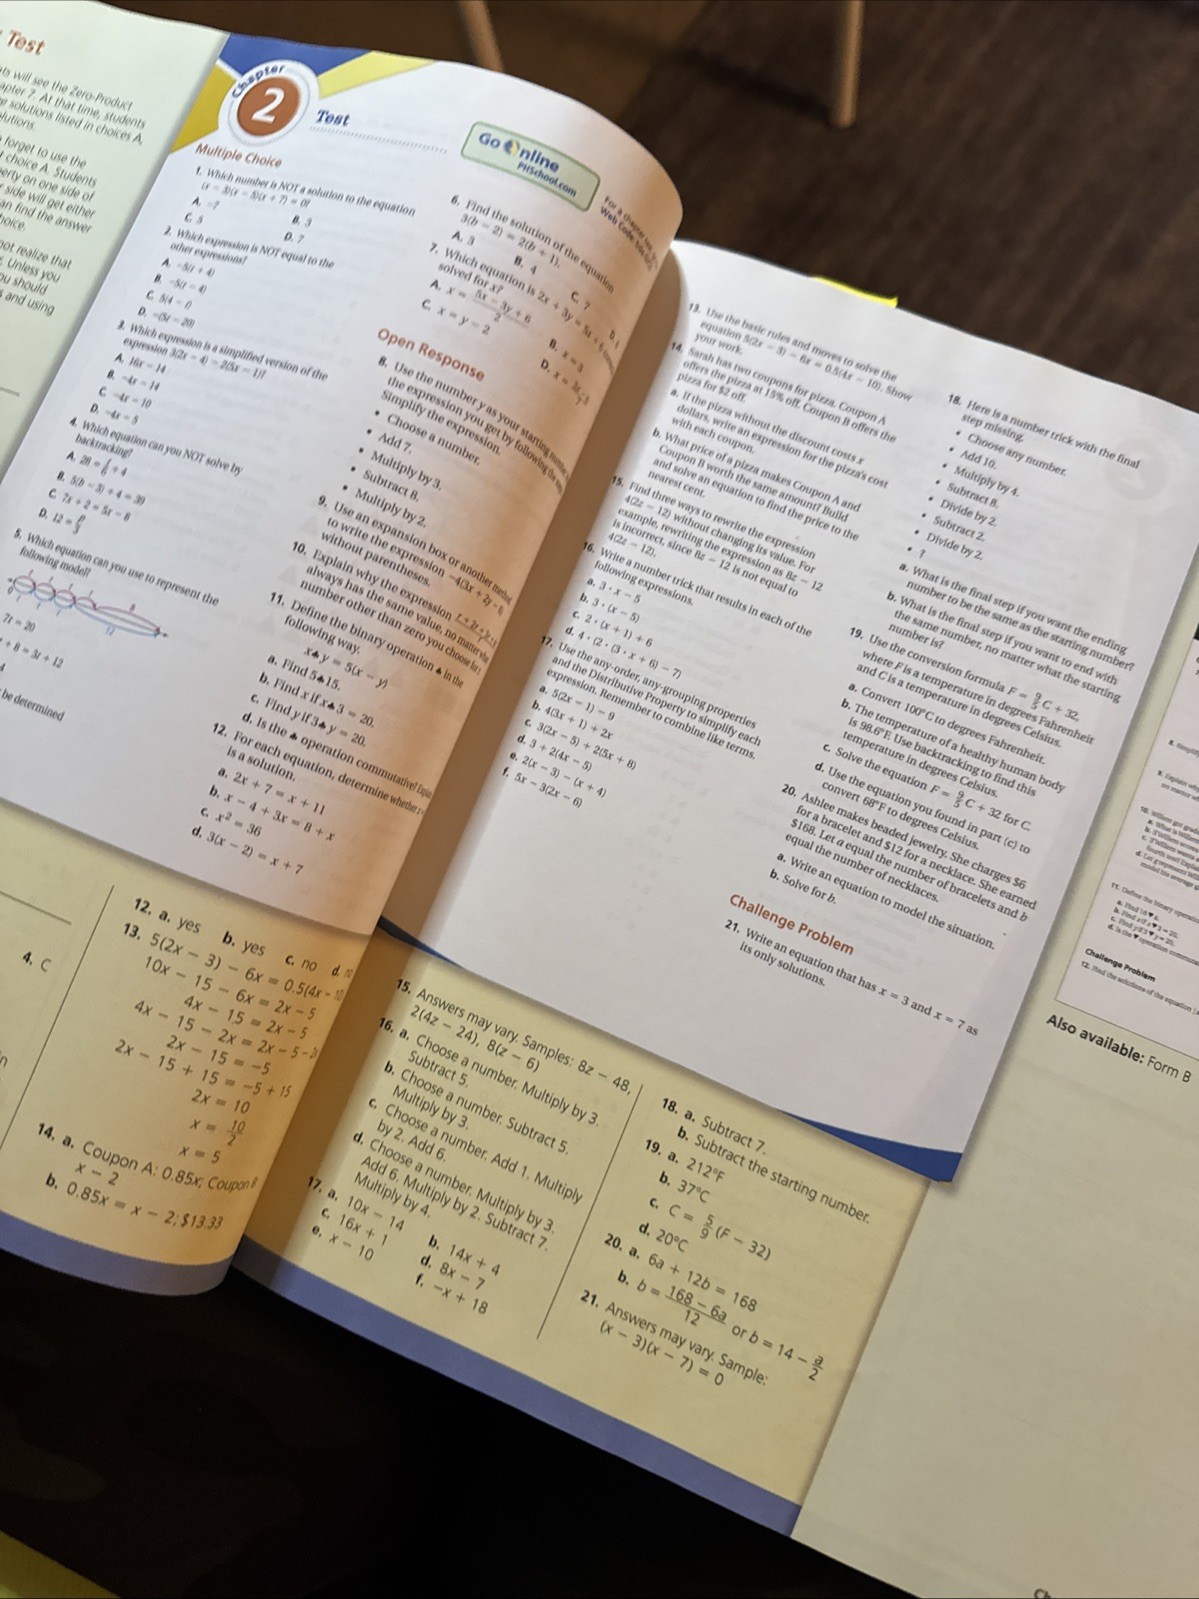 Test
ts will see the Zero-Product
apter 7. At that time, students
e solutions listed in choices A,
lutions.
forget to use the
choice A. Students
erty on one side of
side will get either
an find the answer
hoice.
not realize that
Unless you
ou should
s and using
Chapter
2
Test
Go Online
PHSchool.com
For a chapter test,
Web Code:
Multiple Choice
1. Which number is NOT a solution to the equation
(x − 3)(x − 5)(x + 7) = 0?
A. −7
B. 3
C. 5
D. 7
2. Which expression is NOT equal to the
other expressions?
A. −5(t + 4)
B. −5(t − 4)
C. 5(4 − t)
D. −(5t − 20)
3. Which expression is a simplified version of the
expression 3(2x − 4) − 2(5x − 1)?
A. 16x − 14
B. −4x − 14
C. −4x − 10
D. −4x − 5
4. Which equation can you NOT solve by
backtracking?
B. 5(b − 3) + 4 = 39
C. 7x + 2 = 5x − 8
5. Which equation can you use to represent the
following model?
7t = 20
+ 8 = 3t + 12
be determined
6. Find the solution of the equation
3(b − 2) = 2(b + 1).
A. 3
B. 4
C. 7
7. Which equation is 2x + 3y = 5x + 6
solved for x?
A. x = 5x − 3y + 6 / 2
C. x = y − 2
Open Response
8. Use the number y as your starting number
the expression you get by following the
Simplify the expression.
• Choose a number.
• Add 7.
• Multiply by 3.
• Subtract 8.
• Multiply by 2.
9. Use an expansion box or another method
to write the expression −4(3x + 2y − 6)
without parentheses.
10. Explain why the expression
always has the same value, no matter what
number other than zero you choose for
11. Define the binary operation ♣ in the
following way.
x♣y = 5(x − y)
a. Find 5♣15.
b. Find x if x♣3 = 20.
c. Find y if 3♣y = 20.
d. Is the ♣ operation commutative?
12. For each equation, determine whether
is a solution.
a. 2x + 7 = x + 11
b. x − 4 + 3x = 8 + x
c. x² = 36
d. 3(x − 2) = x + 7
13. Use the basic rules and moves to solve the
equation 5(2x − 3) − 6x = 0.5(4x − 10). Show
your work.
14. Sarah has two coupons for pizza. Coupon A
offers the pizza at 15% off. Coupon B offers the
pizza for $2 off.
a. If the pizza without the discount costs x
dollars, write an expression for the pizza's cost
with each coupon.
b. What price of a pizza makes Coupon A and
Coupon B worth the same amount? Build
and solve an equation to find the price to the
nearest cent.
15. Find three ways to rewrite the expression
4(2z − 12) without changing its value. For
example, rewriting the expression as 8z − 12
is incorrect, since 8z − 12 is not equal to
4(2z − 12).
16. Write a number trick that results in each of the
following expressions.
a. 3 · x − 5
b. 3 · (x − 5)
c. 2 · (x + 1) + 6
d. 4 · (2 · (3 · x + 6) − 7)
17. Use the any-order, any-grouping properties
and the Distributive Property to simplify each
expression. Remember to combine like terms.
a. 5(2x − 1) − 9
b. 4(3x + 1) + 2x
c. 3(2x − 5) + 2(5x + 8)
d. 3 + 2(4x − 5)
e. 2(x − 3) − (x + 4)
f. 5x − 3(2x − 6)
18. Here is a number trick with the final
step missing.
• Choose any number.
• Add 10.
• Multiply by 4.
• Subtract 8.
• Divide by 2.
• Subtract 2.
• Divide by 2.
• ?
a. What is the final step if you want the ending
number to be the same as the starting number?
b. What is the final step if you want to end with
the same number, no matter what the starting
number is?
19. Use the conversion formula F = 9/5 C + 32,
where F is a temperature in degrees Fahrenheit
and C is a temperature in degrees Celsius.
a. Convert 100°C to degrees Fahrenheit.
b. The temperature of a healthy human body
is 98.6°F. Use backtracking to find this
temperature in degrees Celsius.
c. Solve the equation F = 9/5 C + 32 for C.
d. Use the equation you found in part (c) to
convert 68°F to degrees Celsius.
20. Ashlee makes beaded jewelry. She charges $6
for a bracelet and $12 for a necklace. She earned
$168. Let a equal the number of bracelets and b
equal the number of necklaces.
a. Write an equation to model the situation.
b. Solve for b.
Challenge Problem
21. Write an equation that has x = 3 and x = 7 as
its only solutions.
4. C
12. a. yes b. yes c. no d.
13. 5(2x − 3) − 6x = 0.5(4x − 10
10x − 15 − 6x = 2x − 5
4x − 15 = 2x − 5
4x − 15 − 2x = 2x − 5 − 2
2x − 15 = −5
2x − 15 + 15 = −5 + 15
2x = 10
x = 10/2
x = 5
14. a. Coupon A: 0.85x; Coupon B
x − 2
b. 0.85x = x − 2; $13.33
15. Answers may vary. Samples: 8z − 48,
2(4z − 24), 8(z − 6)
16. a. Choose a number. Multiply by 3.
Subtract 5.
b. Choose a number. Subtract 5.
Multiply by 3.
c. Choose a number. Add 1. Multiply
by 2. Add 6.
d. Choose a number. Multiply by 3.
Add 6. Multiply by 2. Subtract 7.
Multiply by 4.
17. a. 10x − 14 b. 14x + 4
c. 16x + 1 d. 8x − 7
e. x − 10 f. −x + 18
18. a. Subtract 7.
b. Subtract the starting number.
19. a. 212°F
b. 37°C
c. C = 5/9 (F − 32)
d. 20°C
20. a. 6a + 12b = 168
b. b = 168 − 6a / 12 or b = 14 − a/2
21. Answers may vary. Sample:
(x − 3)(x − 7) = 0
Challenge Problem
Also available: Form B